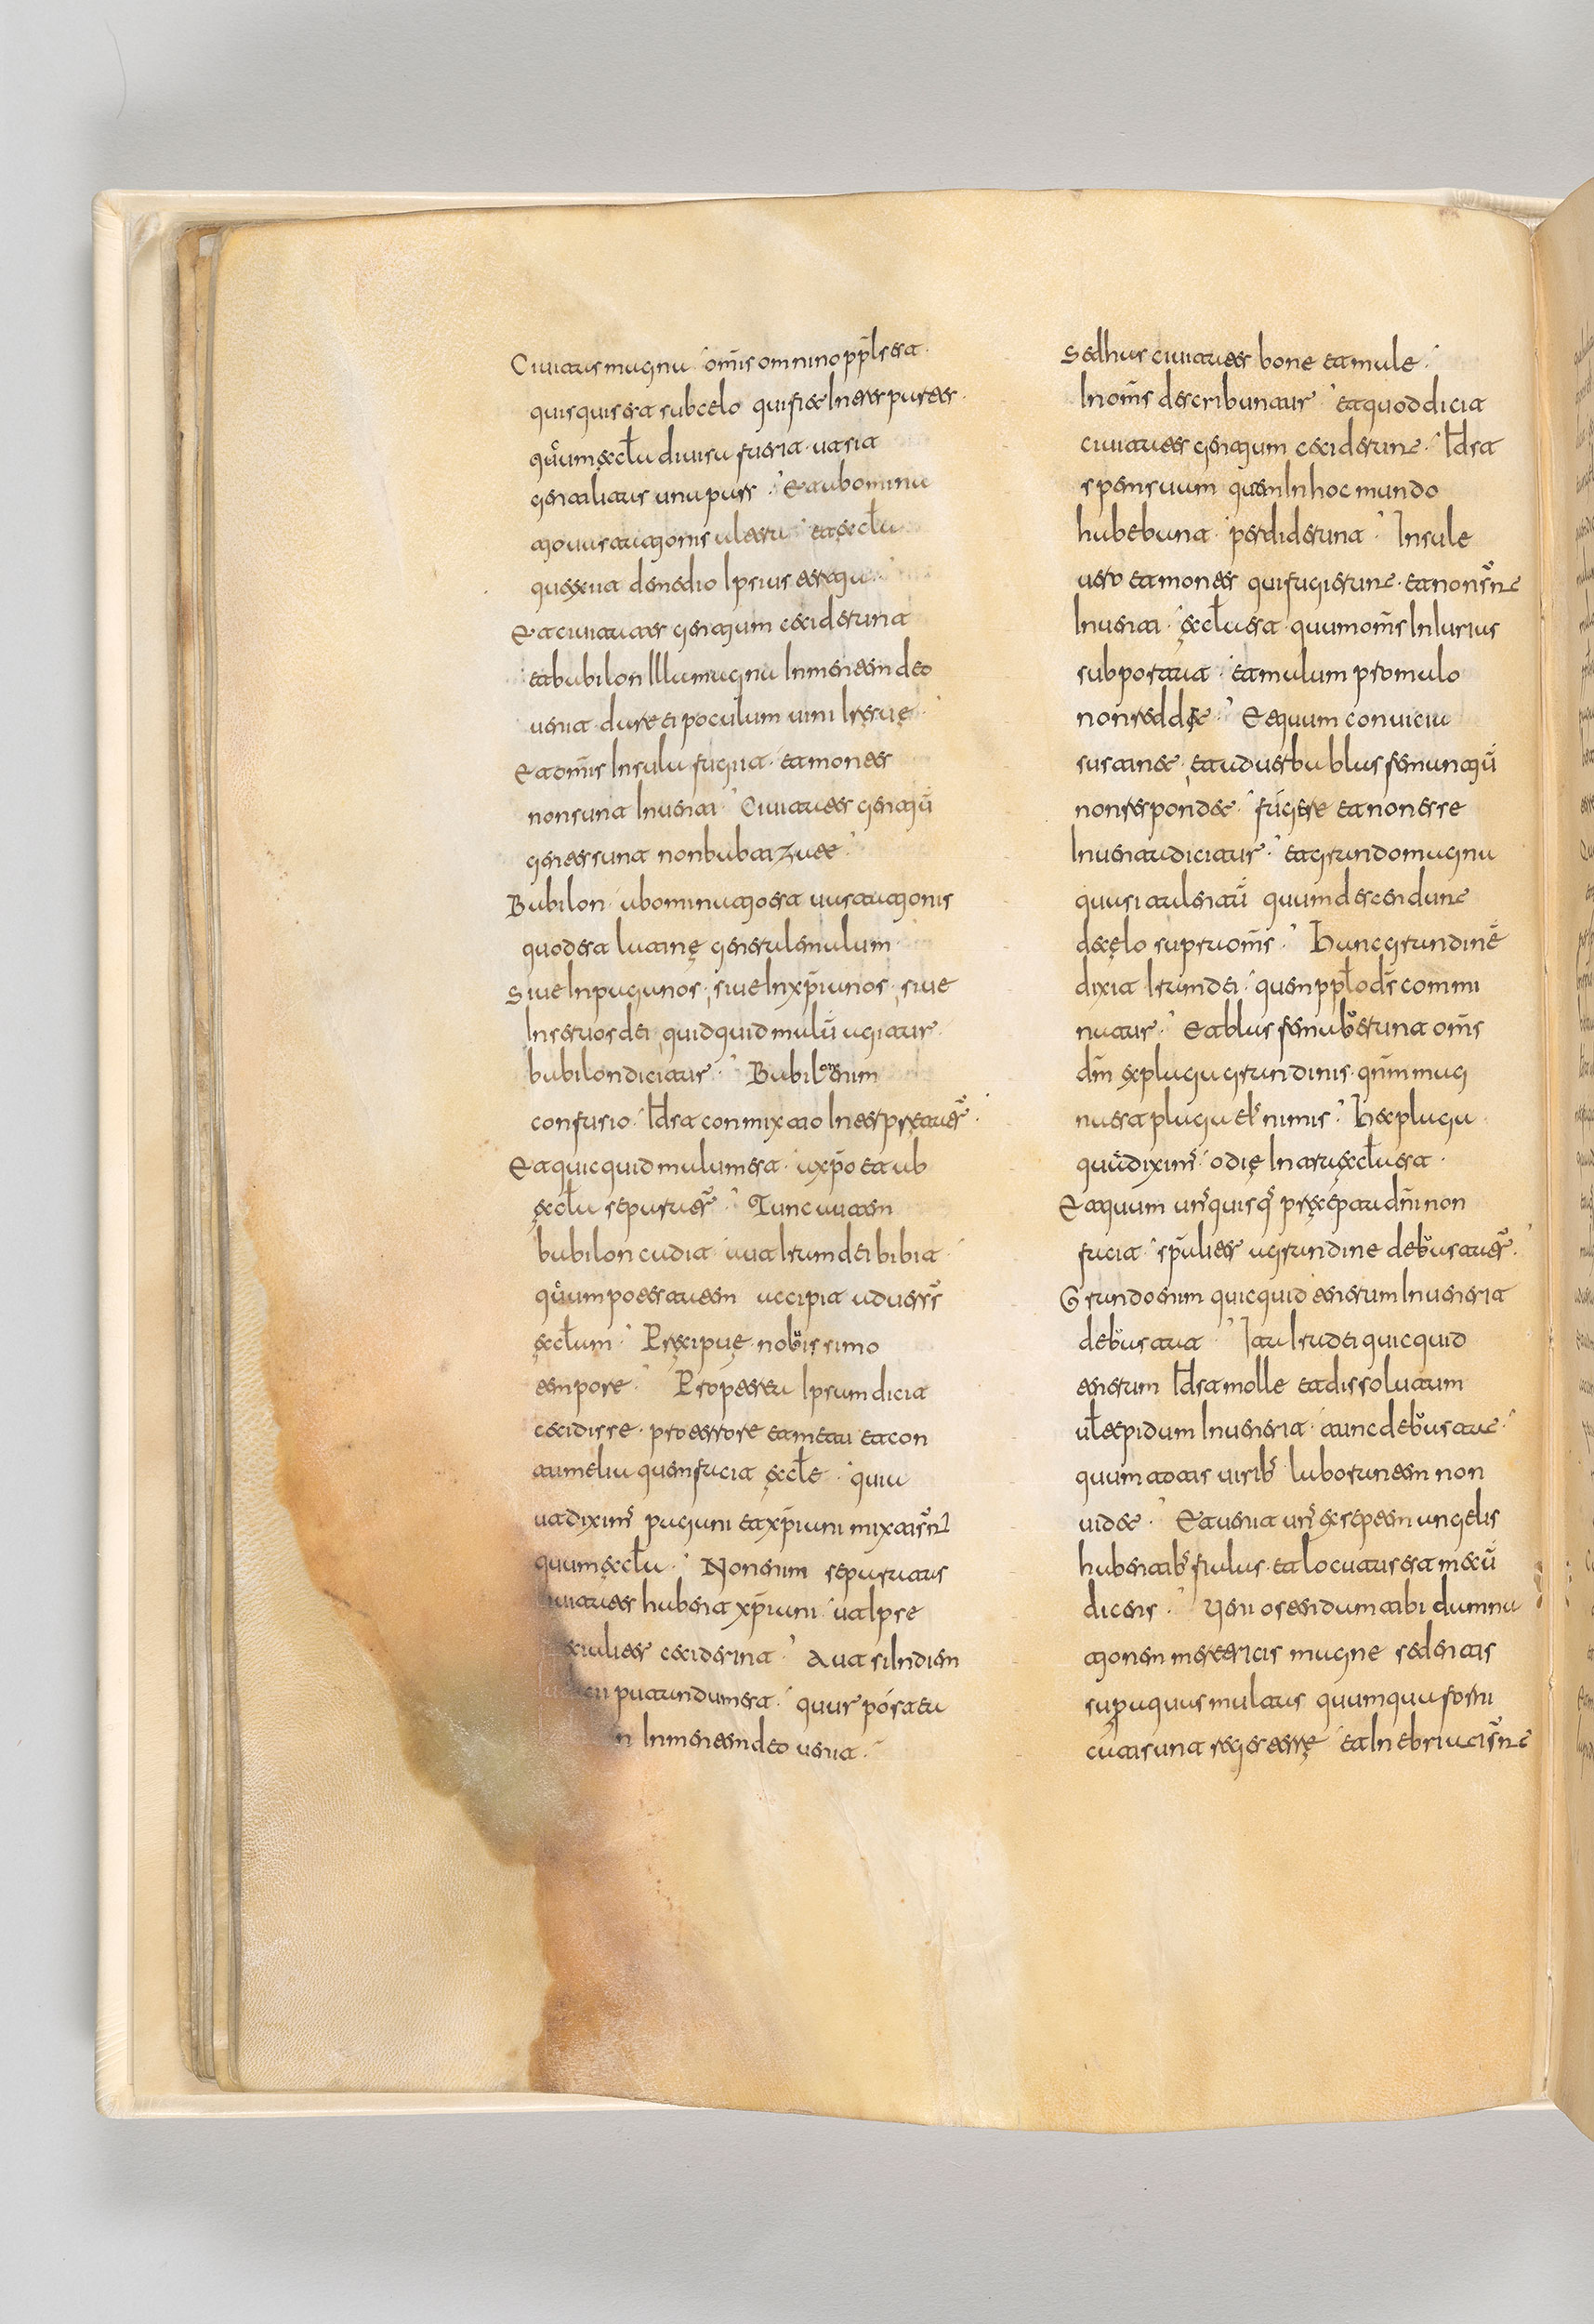 Civitas magna · om̄is omnino pp̄ls est ·
quisquis est sub celo qui fiet In tres partes ·
quum ęccl̄a divisa fuerit · ut sit
gentilitas una pars · Et abomina
tio vastationis
que exiit de medio Ipsius
Et civitates gentium ceciderunt
et babilon Illa magna In mentem deo
venit dare ei poculum vini Irę suę
Et om̄is Insula fugiit · et montes
non sunt Inventi · Civitates gentiū
gentes sunt non babtizate ·
Babilon abominatio est vastationis
quod est latinę generalem malum
sive In paganos · sive In xp̄ianos · sive
In servos dei quidquid malū agitur
babilon dicitur · Babilon enim
confusio · Id est conmixtio Interprętatur̄ ·
Et quicquid malum est · a xp̄o et ab
ęccl̄a separatur̄ · Tunc autem
babilon cadit · aut Iram dei bibit ·
quum potestatem accipit adversus
ęccl̄am · Pręcipuę nobissimo
tempore · Propter Ipsum dicit
cecidisse · pro terrore et metu et con
tumelia quem faciat ęccl̄e · quia
ut diximus pagani et xp̄iani mixti sn̄t
quum ęccl̄a · Non enim separatas
civitates habent xp̄iani · ut Ipse
speciales ceciderint · At si In diem
putandum est · quur postea
In mentem deo venit ·
Sed has civitates bone et male ·
In om̄s describuntur · et quod dicit
civitates gentium ceciderunt · Id est
spem suam quem In hoc mundo
habebant · perdiderunt · Insule
vero et montes qui fugierunt · et non sn̄t
Inventi · ęccl̄a est · quum om̄s Inlurias
subportat · et malum pro malo
non reddęt · Et quum convicia
sustinet · et adversa ablus seminantiū
non respondet · fugere et non esse
Inventa dicitur · et grando magna
quasi talentū quum descendunt
de cęlo supra om̄s · Hanc grandinē
dixit Iram dei · quem pp̄lo ds̄ commi
natur · Et ablasfemaberunt om̄s
dm̄ ex plaga grandinis · qm̄ mag
na est plaga eĪ nimis · Hec plaga
quā diximus odię In atra ęccl̄a est ·
Et quum unusquisque pręcepta dn̄i non
facit · sp̄aliter a grandine debastatur̄ ·
Grando enim quicquid enerum Invenerit
debastat · Ita Ira dei quicquid
enerum Id est molle et dissolutum
vl̄ tepidum Invenerit · tunc debastat ·
quum totis viribus laborantem non
videt · Et venit unus ex septem angelis
habentibus fialas · et locutus est mecū
dicens · Veni ostendam tibi damna
tionem meretricis magne sedentis
super aquas multas quum qua forni
cati sunt reges terrę · et Inebriati sn̄t